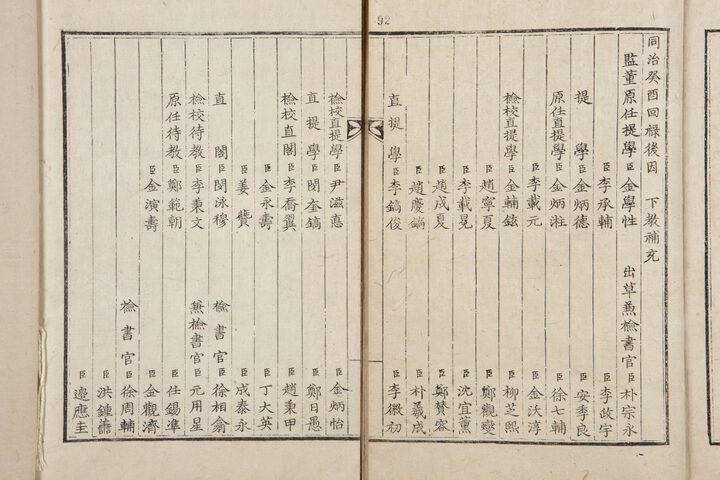 92
同治癸酉回祿後因 下教補充
監董原任提學臣金學性 出草兼檢書官臣朴宗永
臣李承輔 臣李政宇
提學臣金炳德 臣安季良
原任直提學臣金炳溎 臣徐七輔
臣李載元 臣金沃淳
檢校直提學臣金輔鉉 臣柳芝熙
臣趙寧夏 臣鄭觀燮
臣李載冕 臣沈宜薰
臣趙成夏 臣鄭賛容
臣趙慶鎬 臣朴羲成
直提學臣李鎬俊 臣李徽初
檢校直提學臣尹滋悳 臣金炳怡
直提學臣閔奎鎬 臣鄭日愚
檢校直閣臣李喬翼 臣趙秉甲
臣金永壽 臣丁大英
臣姜 臣成泰永
直閣臣閔泳穆 檢書官臣徐相翕
檢校待教臣李秉文 兼檢書官臣元用星
原任待教臣鄭範朝 臣任錫準
臣金演壽 臣金觀濟
檢書官臣徐周輔
臣洪鍾
臣邊應圭